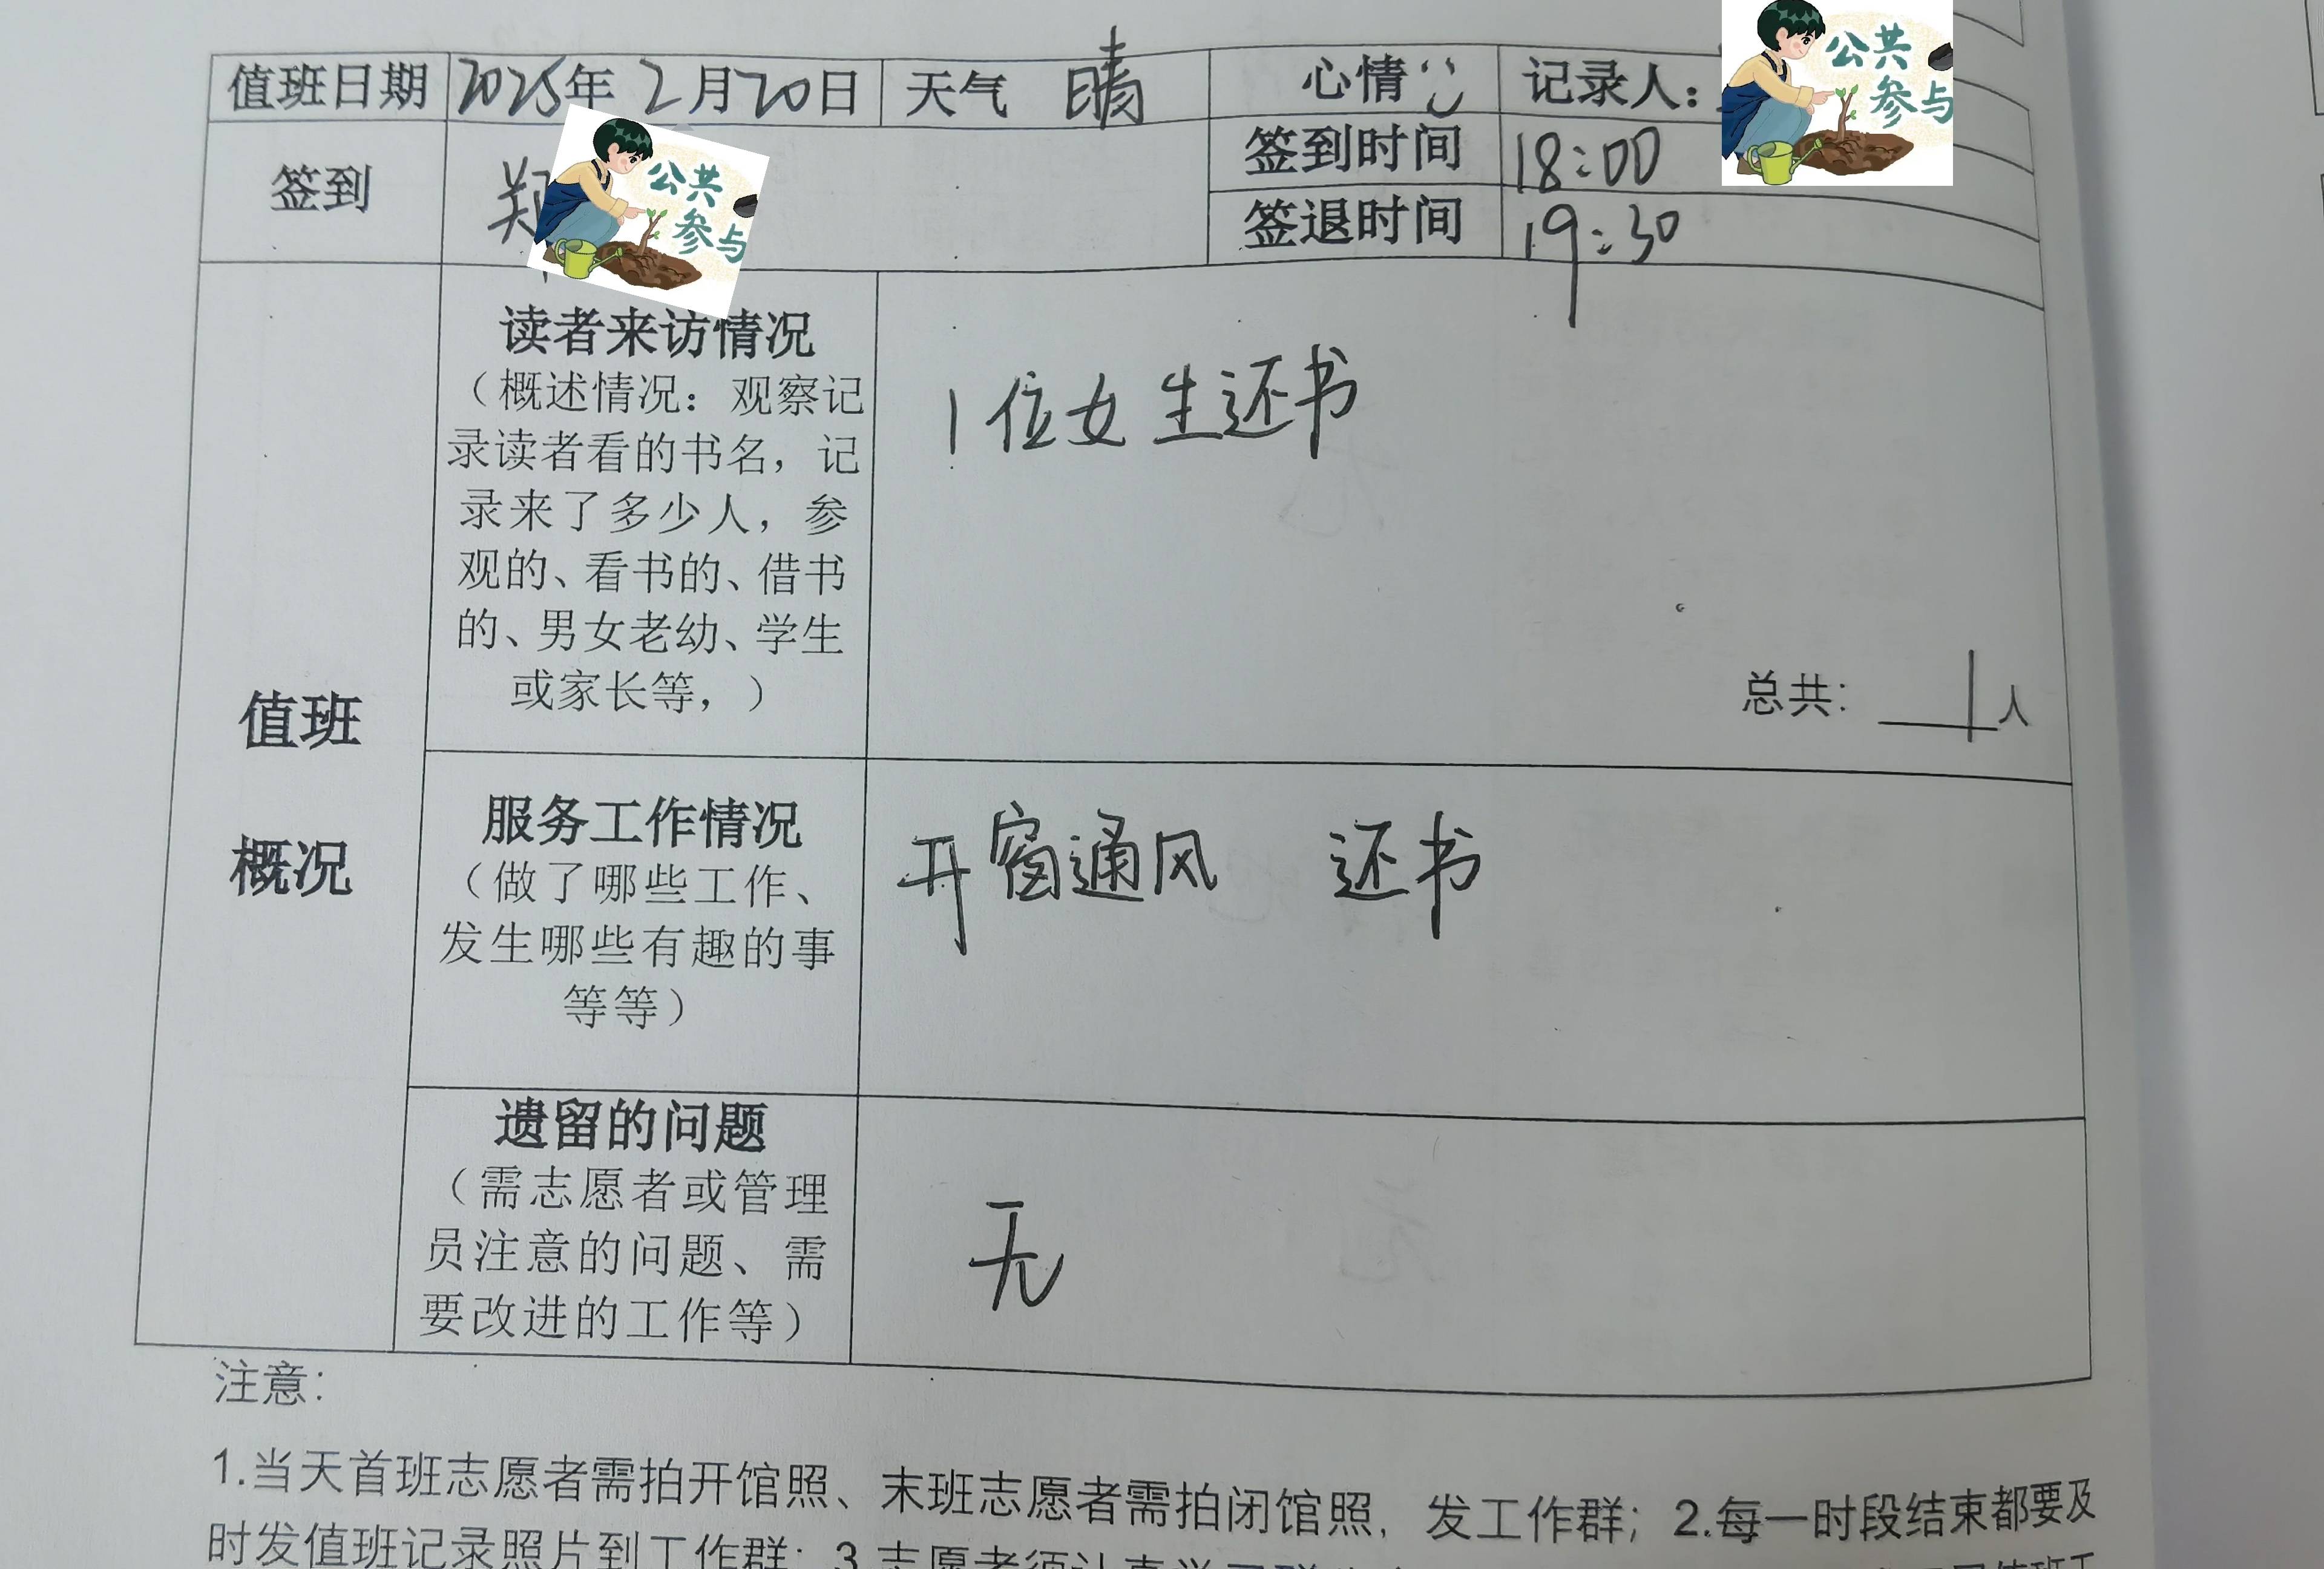 值班日期 2025年 2月20日 天气 晴 心情 记录人：
签到 郑 签到时间 18:00
签退时间 19:30
公共
参与
公共
参与
值班
概况
读者来访情况
（概述情况：观察记
录读者看的书名，记
录来了多少人，参
观的、看书的、借书
的、男女老幼、学生
或家长等，）
1位女生还书
总共： 1人
服务工作情况
（做了哪些工作、
发生哪些有趣的事
等等）
开窗通风 还书
遗留的问题
（需志愿者或管理
员注意的问题、需
要改进的工作等）
无
注意：
1.当天首班志愿者需拍开馆照、末班志愿者需拍闭馆照，发工作群；2.每一时段结束都要及
时发值班记录照片到工作群；3.志愿者须认真学习